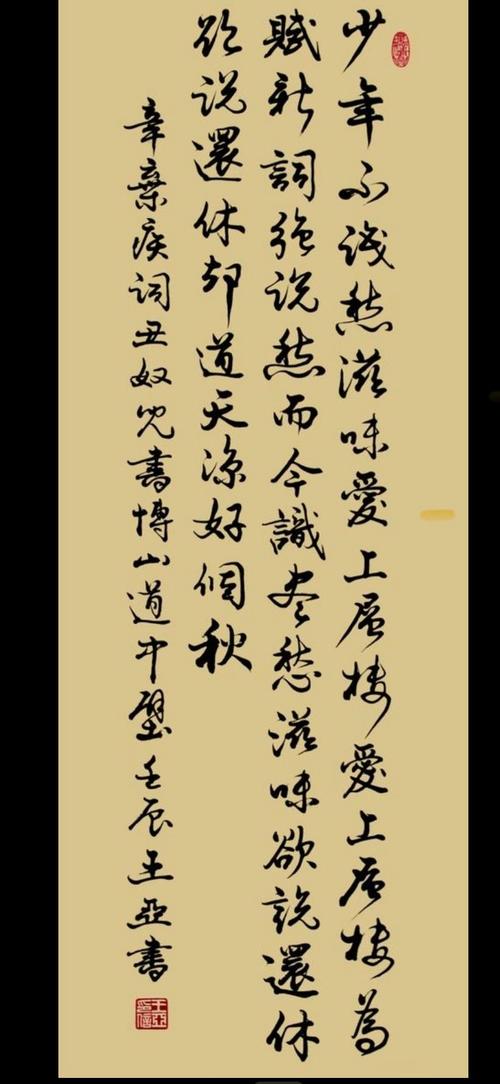 少年不識愁滋味愛上層樓愛上層樓為
賦新詞強說愁而今識盡愁滋味欲說還休
欲說還休却道天涼好個秋
辛棄疾詞丑奴兒書博山道中壁壬辰王亞書
王亞印信